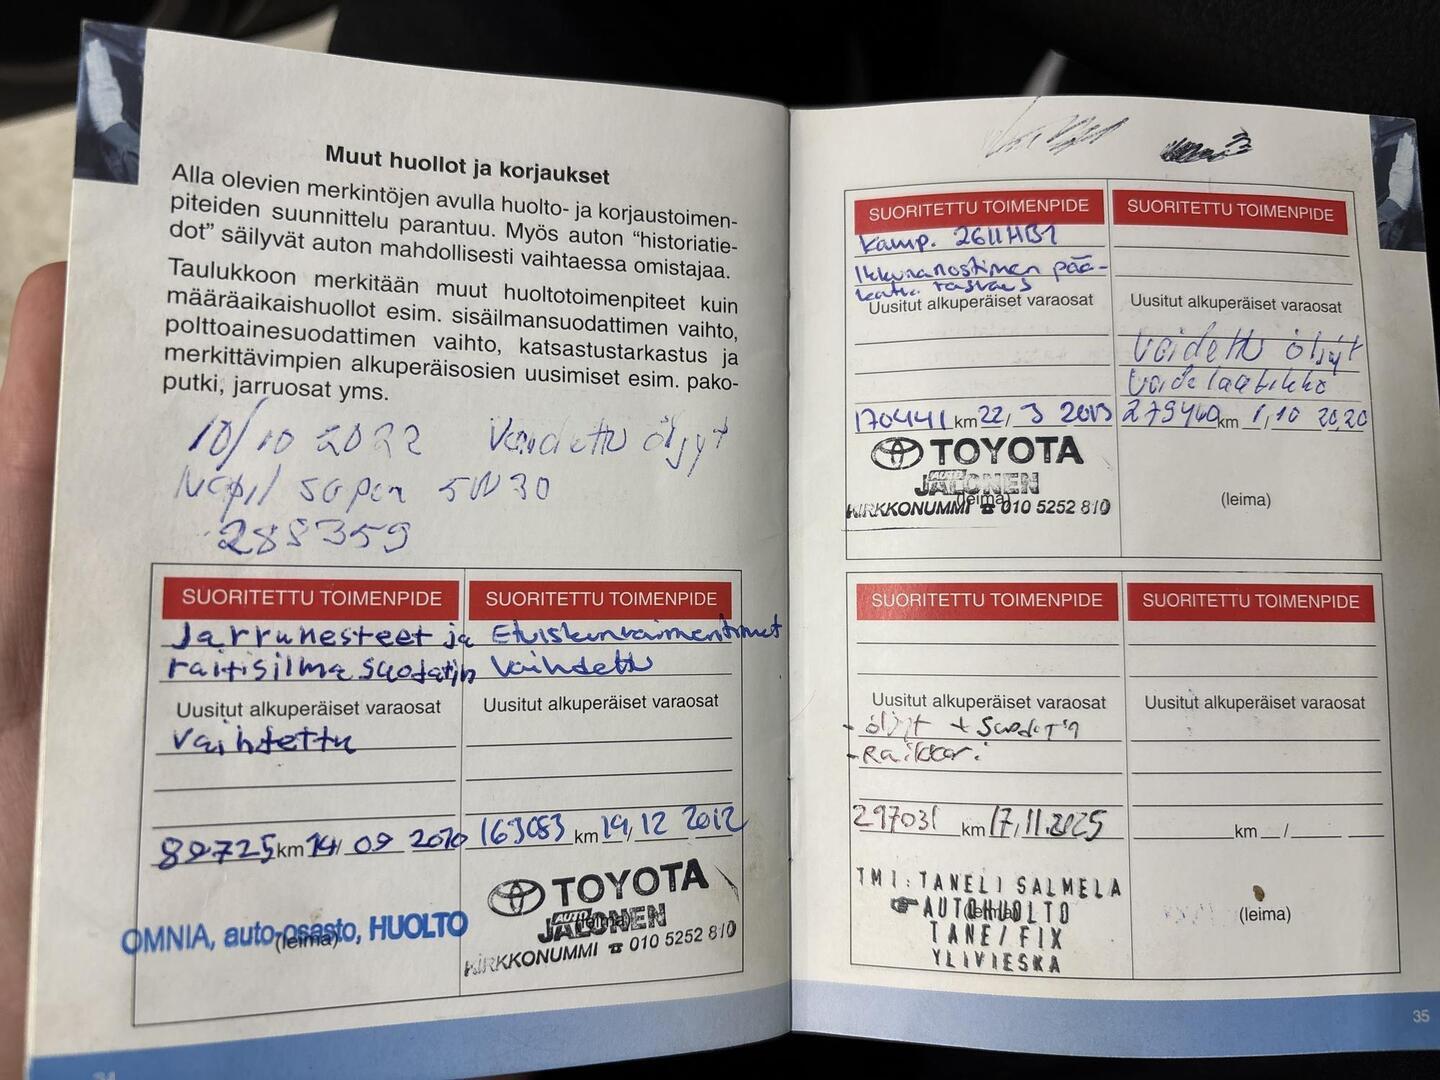 Muut huollot ja korjaukset
Alla olevien merkintöjen avulla huolto- ja korjaustoimen-
piteiden suunnittelu parantuu. Myös auton “historiatie-
dot” säilyvät auton mahdollisesti vaihtaessa omistajaa.
Taulukkoon merkitään muut huoltotoimenpiteet kuin
määräaikaishuollot esim. sisäilmansuodattimen vaihto,
polttoainesuodattimen vaihto, katsastustarkastus ja
merkittävimpien alkuperäisosien uusimiset esim. pako-
putki, jarruosat yms.
10/10 2022 Vaidettu öljyt
5W30
288359
SUORITETTU TOIMENPIDE
Jarrunesteet ja
raitisilma suodatin
Uusitut alkuperäiset varaosat
Vaihdettu
89725 km 14/ 09 2010
OMNIA, auto-osasto, HUOLTO
(leima)
SUORITETTU TOIMENPIDE
Etuiskunvaimentimet
Vaihdettu
Uusitut alkuperäiset varaosat
163083 km 19/ 12 2012
TOYOTA
AUTO
JALONEN
(leima)
KIRKKONUMMI ☎ 010 5252 810
SUORITETTU TOIMENPIDE
Kamp. 2611HB1
Ikkunanostimen pää-
katk. rasvaus
Uusitut alkuperäiset varaosat
170441 km 22/ 3 2013
TOYOTA
AUTO
JALONEN
(leima)
KIRKKONUMMI ☎ 010 5252 810
SUORITETTU TOIMENPIDE
Uusitut alkuperäiset varaosat
Vaidettu öljyt
Vaidelaatikko
279440 km 1/10 2020
(leima)
SUORITETTU TOIMENPIDE
Uusitut alkuperäiset varaosat
- öljyt + Suodatin
297031 km 17.11.2025
TMI: TANELI SALMELA
☛ AUTOHUOLTO
(leima)
TANE/FIX
YLIVIESKA
SUORITETTU TOIMENPIDE
Uusitut alkuperäiset varaosat
km __/____ ____
(leima)
35